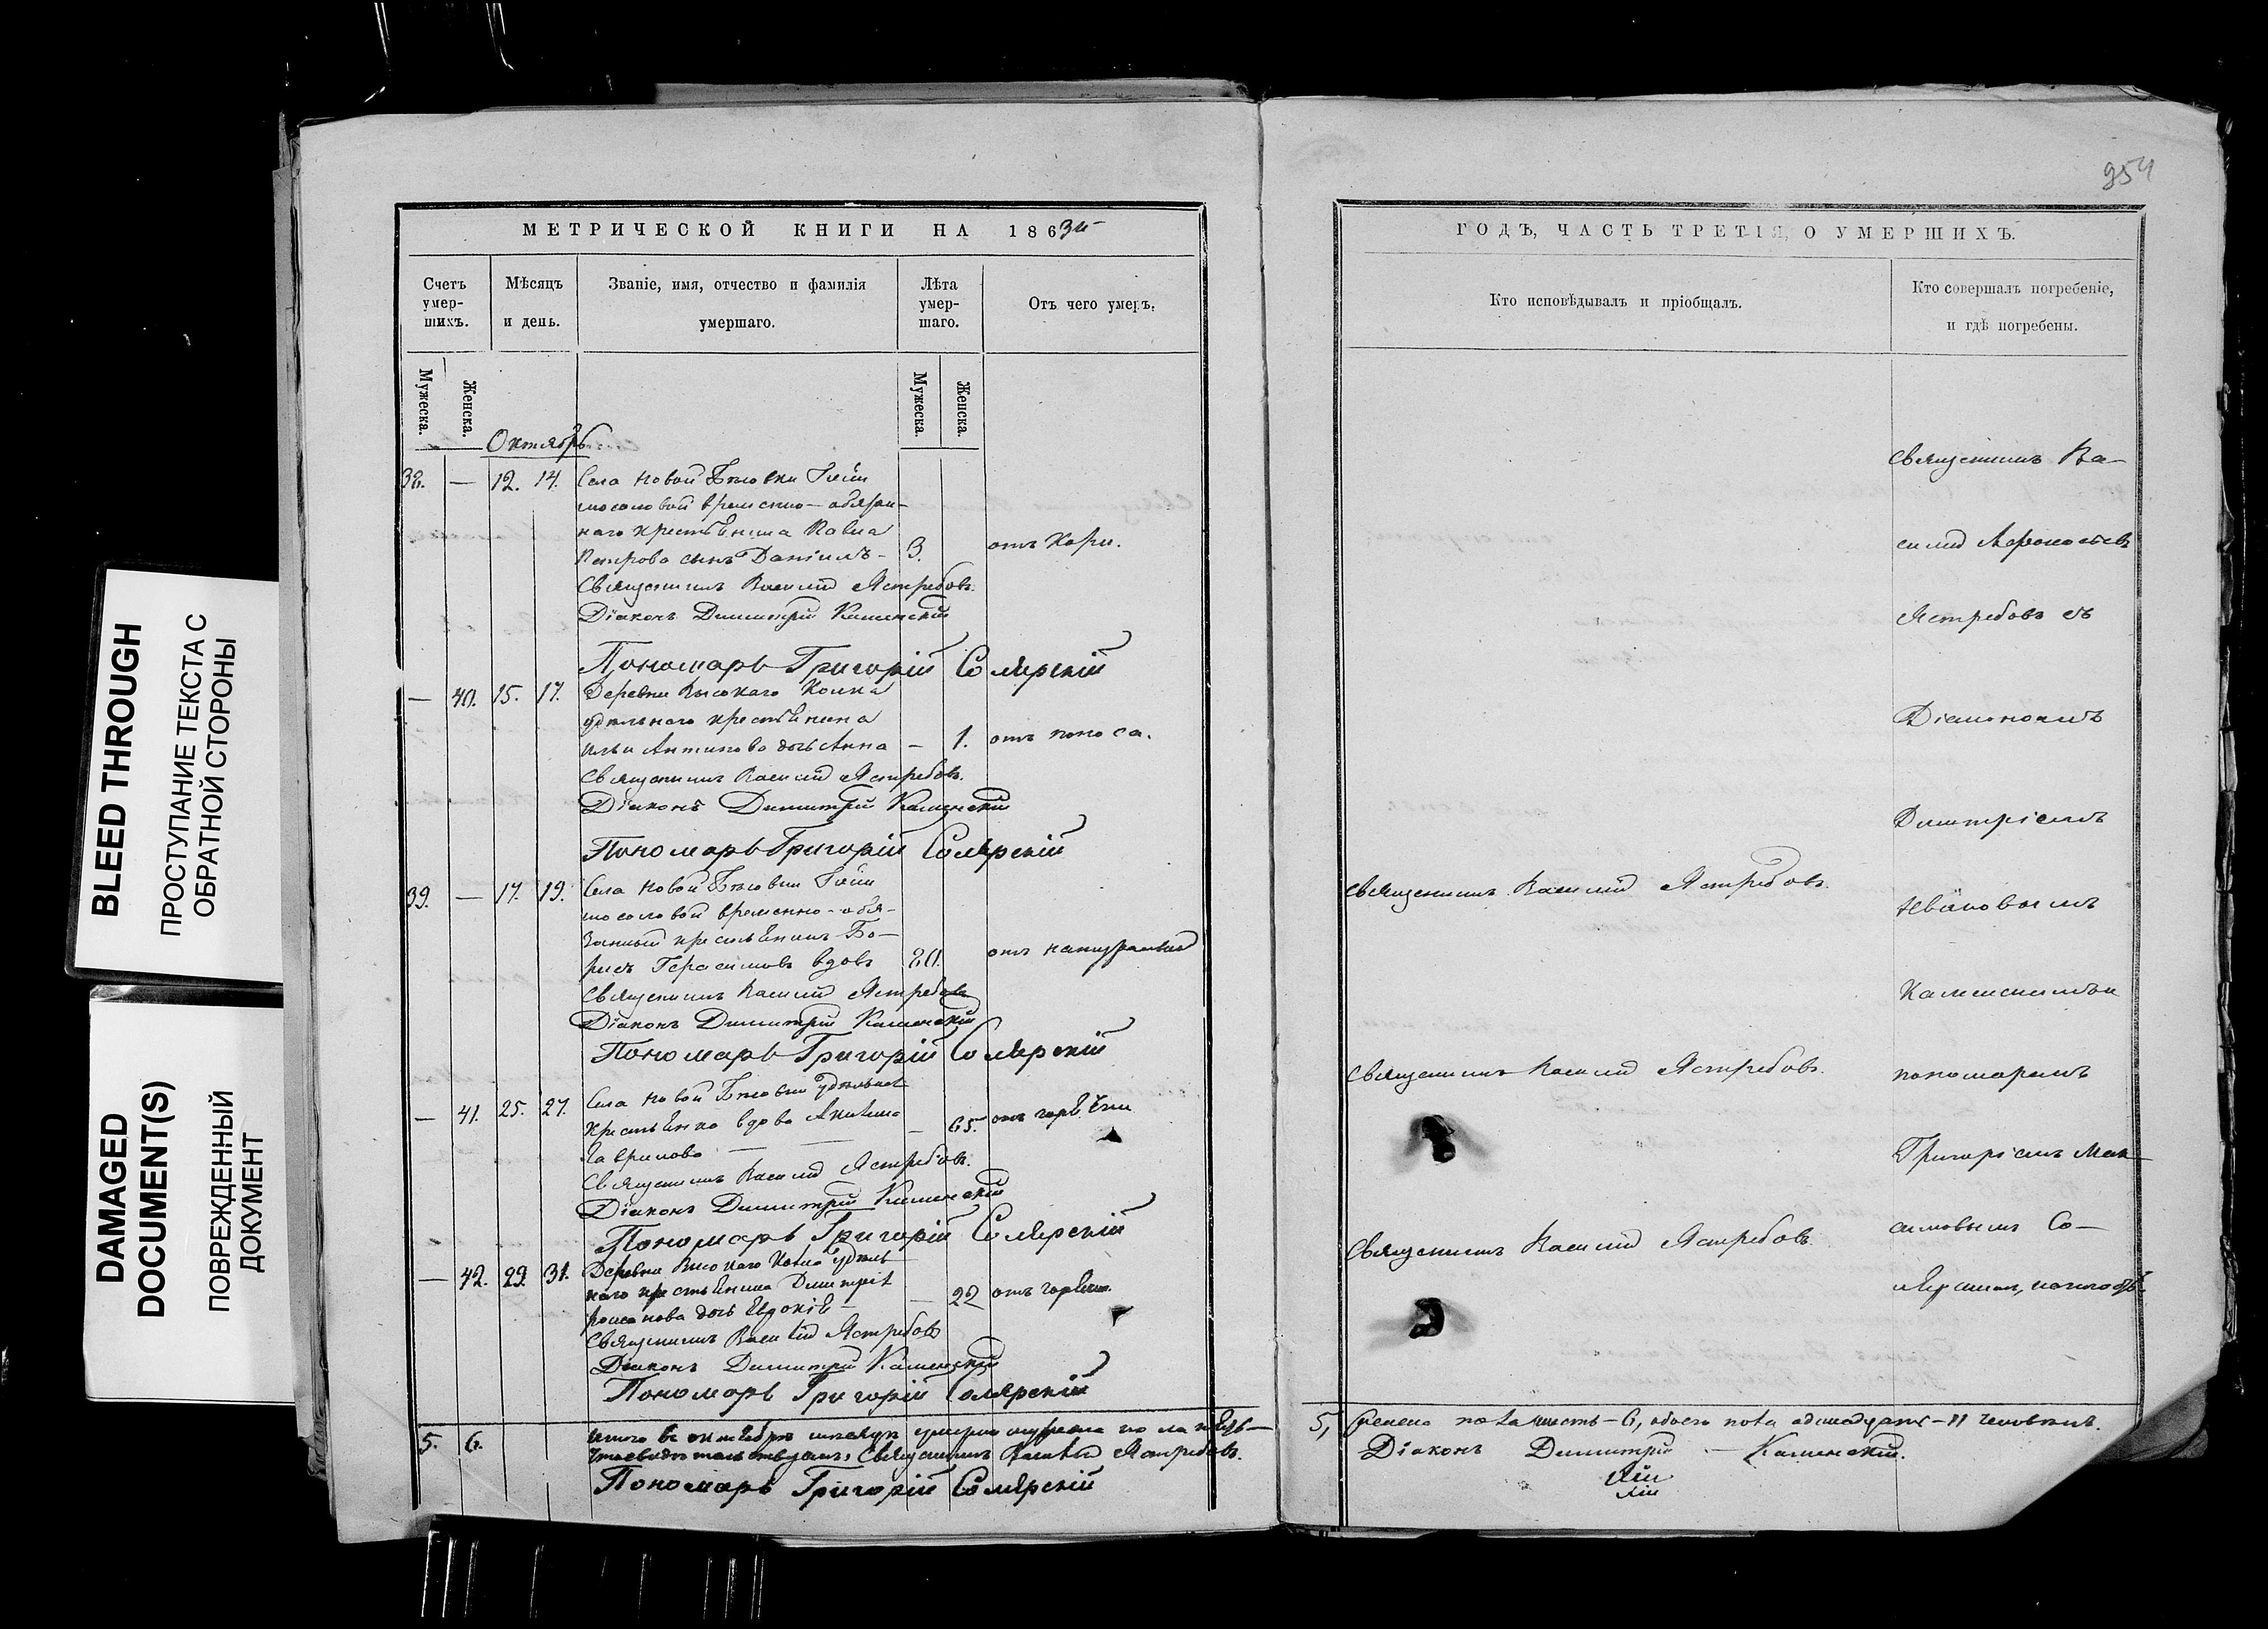 BLEED THROUGH
ПРОСТУПАНИЕ ТЕКСТА С
ОБРАТНОЙ СТОРОНЫ
DAMAGED
DOCUMENT(S)
ПОВРЕЖДЕННЫЙ
ДОКУМЕНТ
МЕТРИЧЕСКОЙ КНИГИ НА 1863й
Счетъ умер-шихъ.
Мѣсяцъ и день.
Званіе, имя, отчество и фамилія умершаго.
Лѣта умер-шаго.
Отъ чего умеръ.
Мужеска.
Женска.
Мужеска.
Женска.
Октябрь
38. — 12. 14. Села Новой
временно-обязан-
наго крестьянина Павла
Петрова сынъ Даніилъ - 3. отъ Кори.
Священникъ Василій Ястребовъ.
Діаконъ Димитрій Каменскій
Пономарь Григорій Солярскій
— 40. 15. 17. Деревни Высокаго
удѣльнаго крестьянина
Ильи Антипова дочь Анна — 1. отъ поноса.
Священникъ Василій Ястребовъ.
Діаконъ Димитрій Каменскій
Пономарь Григорій Солярскій
39. — 17. 19. Села Новой
временно-обя-
занный крестьянинъ Бо-
рисъ Герасимовъ вдовъ 80. отъ натуральной
Священникъ Василій Ястребовъ
Діаконъ Димитрій Каменскій
Пономарь Григорій Солярскій
— 41. 25. 27. Села Новой удѣльная
крестьянка вдова Акилина — 65. отъ горячки
Гаврилова —
Священникъ Василій Ястребовъ.
Діаконъ Димитрій Каменскій
Пономарь Григорій Солярскій
— 42. 29. 31. Деревни Высокаго удѣль-
наго крестьянина Димитрія
Романова дочь Евдокія — — 22 отъ горячки.
Священникъ Василій Ястребовъ
Діаконъ Димитрій Каменскій
Пономарь Григорій Солярскій
5. 6. Итого въ октябрѣ умерло
Священникъ Василій Ястребовъ.
Пономарь Григорій Солярскій
954
ГОДЪ, ЧАСТЬ ТРЕТІЯ, О УМЕРШИХЪ.
Кто исповѣдывалъ и пріобщалъ.
Кто совершалъ погребеніе,
и гдѣ погребены.
Священникъ Ва-
силій
Ястребовъ съ
Діакономъ
Димитріемъ
Священникъ Василій Ястребовъ.
Ивановымъ
Каменскимъ и
Священникъ Василій Ястребовъ.
пономаремъ
Григоріемъ Мак-
симовымъ Со-
Священникъ Василій Ястребовъ.
лярскимъ,
5, женска пола шесть — 6, обоего пола одинадцать — 11 человѣкъ.
Діаконъ Димитрій — Каменскій.